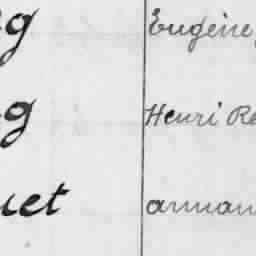 g Eugène
g Henri Re
uet arman